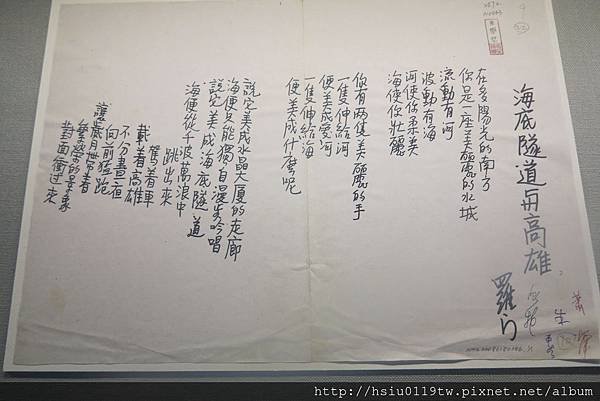 海底隧道 高雄
羅門
在多陽光的南方
你是一座美麗的水城
流動有河
波動有海
河使你柔美
海使你壯麗
你有兩隻美麗的手
一隻伸給河
便美成愛河
一隻伸給海
便美成什麼呢
說它美成水晶大廈的走廊
海便只能獨自漫步吟唱
說它美成海底隧道
海便從千波萬浪中
跳出來
駕着車
載着高雄
不分晝夜
向前猛跑
讓歲月帶着
繁榮的景象
對面衝過來
http://hsiu0119tw.pixnet.net/album